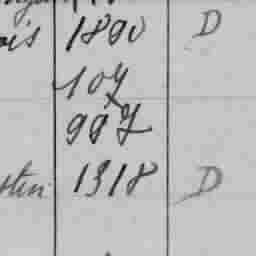 ois 1890 D
107
997
stin 1318 D